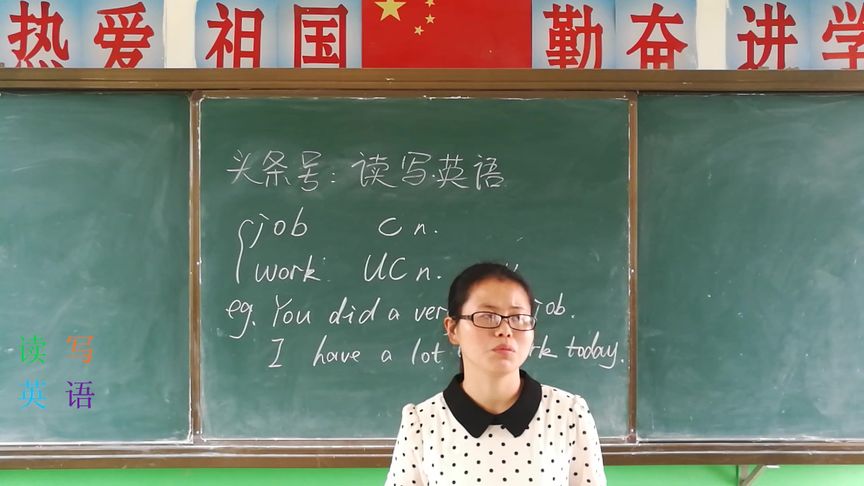 热爱祖国 勤奋进学
头条号:读写英语
job C n.
work UC n.
eg. You did a job.
I have a lot today.
读写
英语